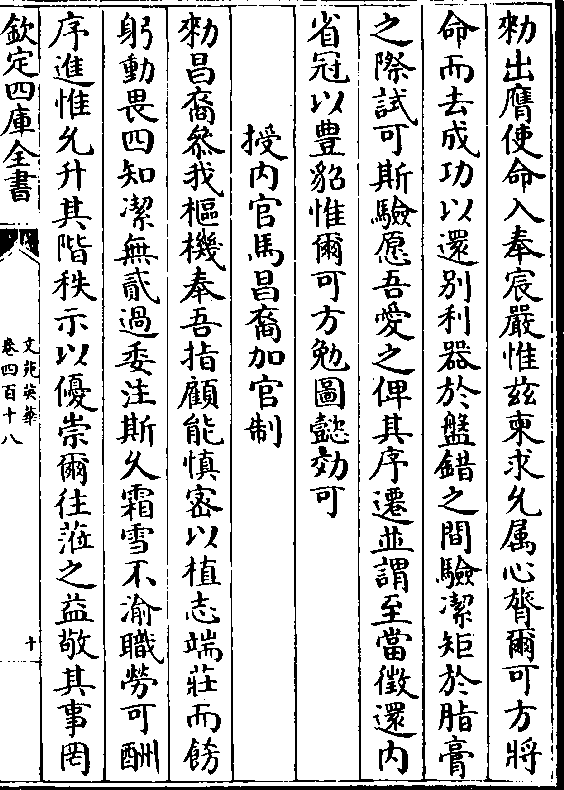 勑出膺使命入奉宸嚴惟兹柬求允属心膂爾可方將
命而去成功以還别利器於盤錯之間驗潔矩於脂膏
之際試可斯驗愿吾愛之俾其序遷並謂至當徴還内
省冠以豊貂惟爾可方勉圖懿効可
授内官馬昌裔加官制
勑昌裔叅我樞機奉吾指顧能慎宻以植志端莊而飭
躬動畏四知潔無貳過委注斯久霜雪不渝職勞可酬
序進惟允升其階秩示以優崇爾往蒞之益敬其事罔
欽定四庫全書
文苑英華
卷四百十八
十